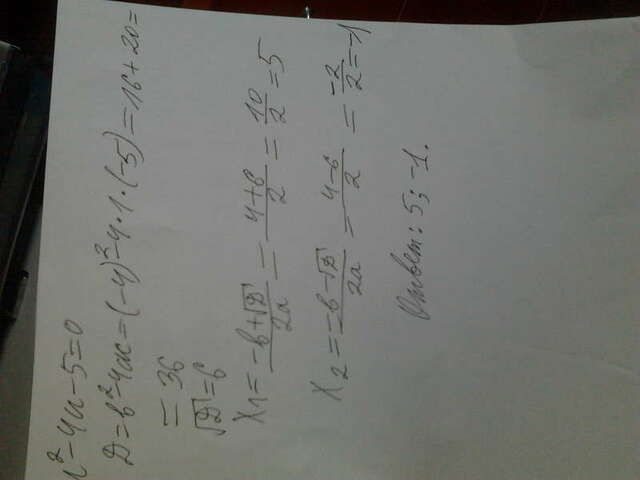 x²-4x-5=0
D=b²-4ac=(-4)²-4·1·(-5)=16+20=
=36
√D=6
x₁=(-b+√D)/2a=(4+6)/2=10/2=5
x₂=(-b-√D)/2a=(4-6)/2=-2/2=-1
Ответ: 5; -1.